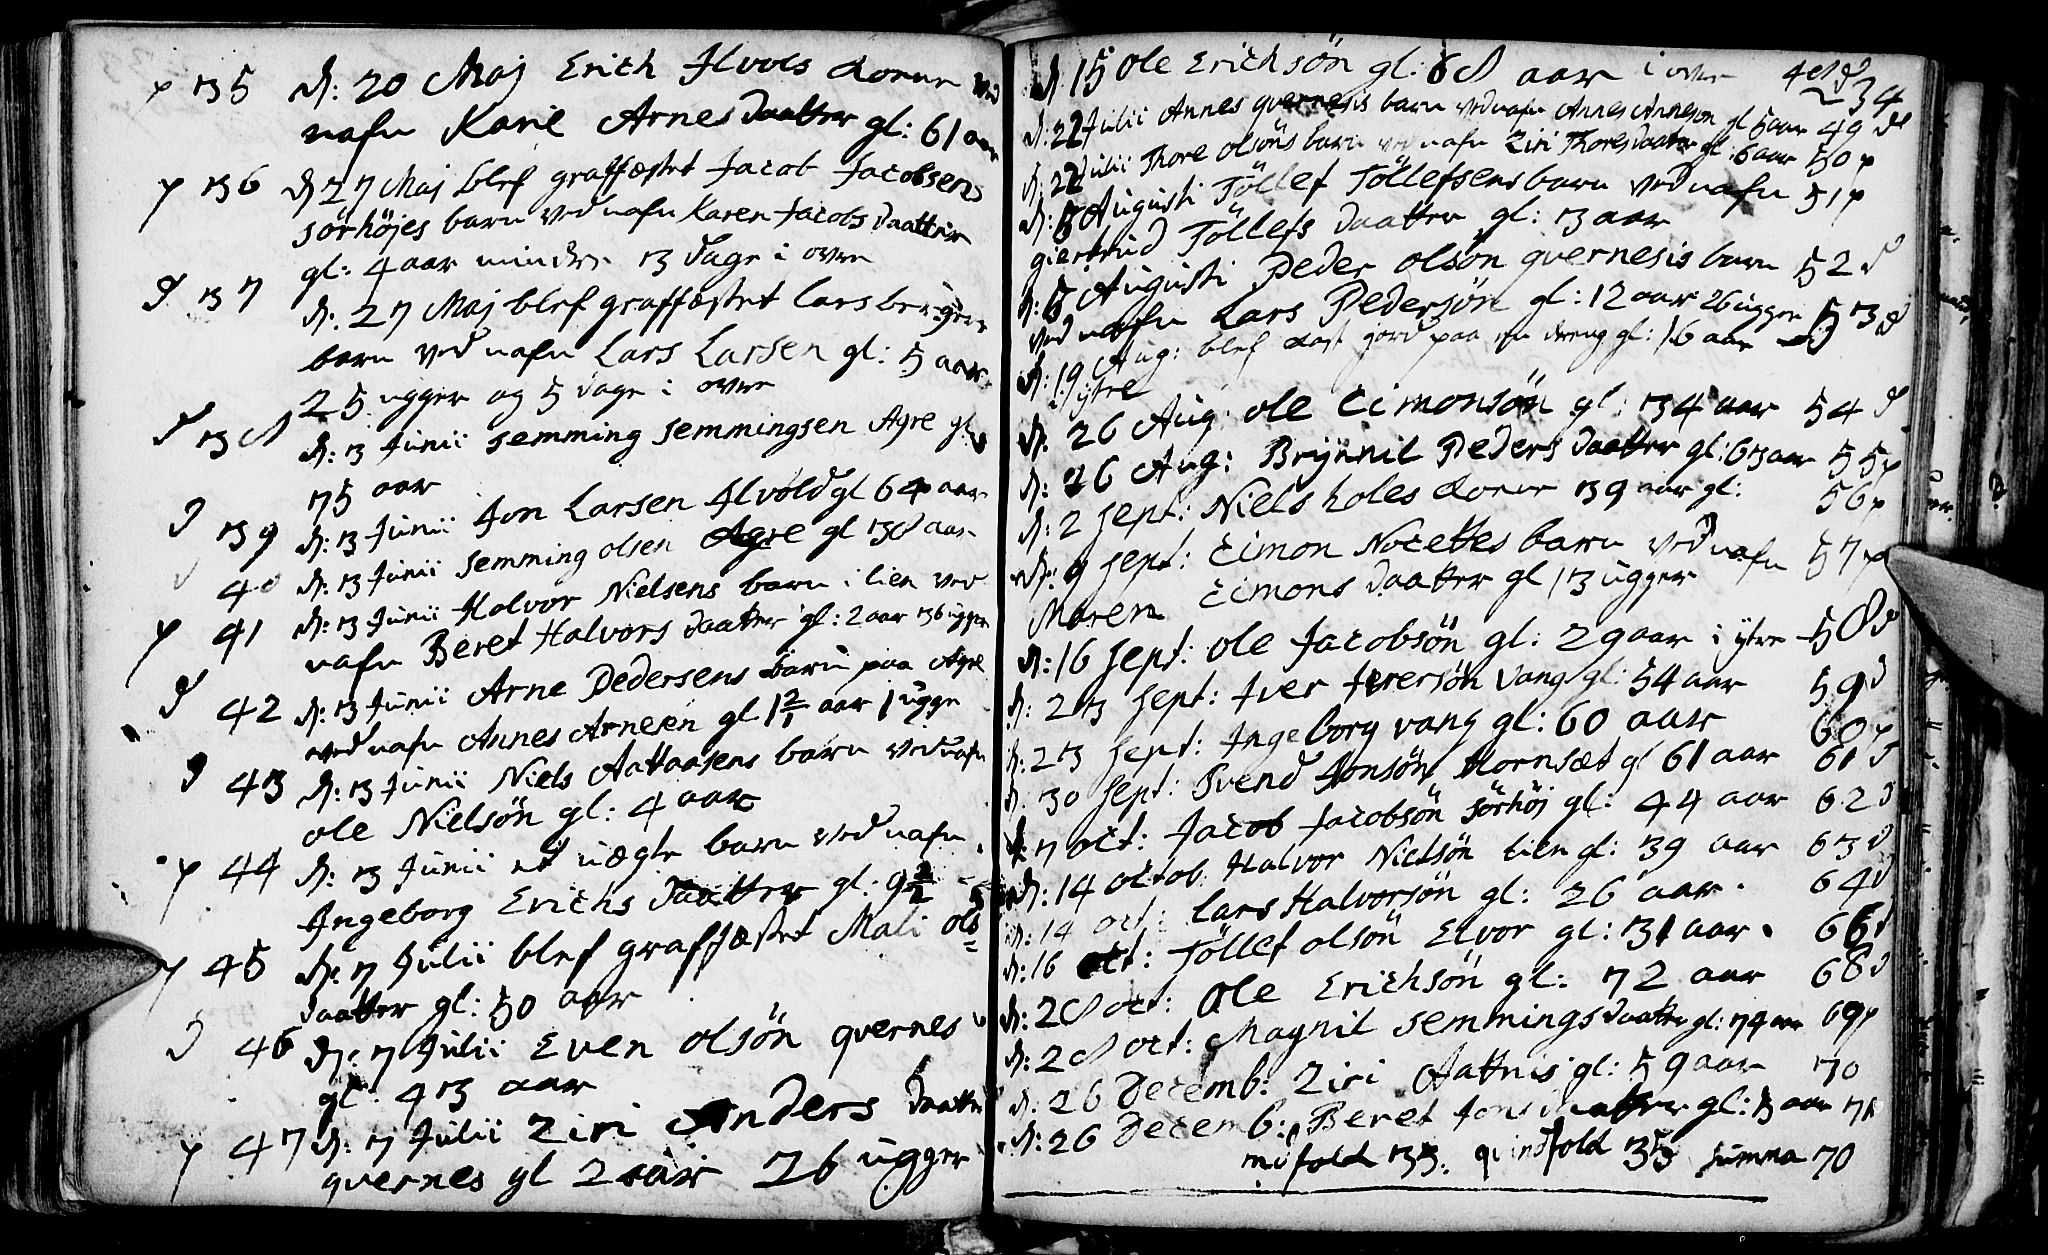 p 35 d: 20 Maj Erich Ilvols kone ved
nafn Karie Arnes daatter gl: 61 aar
p 36 d 27 Maj blef graffæstet Jacob Jacobsens
sörhöjes barn ved nafn Karen Jacobs daatter
gl: 4 aar mindre 3 dage i ovre
d 37 d: 27 Maj blef graffæstet Lars
barn ved nafn Lars Larsen gl: 5 aar
25 ugger og 5 dage i ovre
d 38 d: 3 Junii Semming Semmingsen Agre gl
75 aar
d 39 d: 3 Junii Jon Larsen Ilvold gl 64 aar
40 d: 3 Junii Semming olsen Agre gl 38 aar
p 41 d: 3 Junii Halvor Nielsens barn i lien ved
nafn Beret Halvors daatter gl: 2 aar 36 ugger
d 42 d: 3 Junii Arne Pedersens barn paa Agre
ved nafn Annes Arnesen gl 1 2/1 aar 1 ugge
d 43 d: 3 Junii Niels Aattaasens barn ved nafn
ole Nielsön gl: 4 aar
p 44 d: 3 Junii et uægte barn ved nafn
Ingeborg Erichs daatter gl: 9
p 45 d: 7 Julii blef graffæstet Mali ols=
daatter gl: 50 aar
d 46 d: 7 Julii Even olsön qvernes
gl: 43 aar
p 47 d: 7 Julii Ziri Anders daatter
qvernes gl 2 aar 26 ugger
d 15 ole Erichsön gl: 68 aar i ovre 48 d 34
d: 22 Julii Annes qvernesis barn ved nafn Annes Annesøn gl 5 aar 49 d
d: 22 Julii Thore olsöns barn ved nafn Ziri Thores daatter gl: 6 aar 50 p
d: 5 Augusti Töllef Töllefsens barn ved nafn 51 p
giertrud Töllefs daatter gl: 3 aar
d: 5 Augusti Peder olsön qvernesis barn 52 d
ved nafn Lars Pedersön gl: 12 aar 26 ugger 53 d
d: 19 Aug: blef kast jord paa en dreng gl: 16 aar
i ytre
d: 26 Aug: ole Simonsön gl: 34 aar 54 d
d: 26 Aug: Brynnil Peders daatter gl: 63 aar 55 p
d: 2 Sept: Niels holes kone 39 aar gl: 56 p
d: 9 Sept: Simon Nocettes barn ved nafn 57 p
Maren Simons daatter gl 13 ugger
d: 16 Sept: ole Jacobsön gl: 29 aar i ytre 58 d
d: 23 Sept: Iver Iversön vang gl: 54 aar 59 d
d: 23 Sept: Ingeborg vang gl: 60 aar 60 p
d: 30 Sept: Svend Jonsön Hornsæt gl 61 aar 61 d
d: 7 oct: Jacob Jacobsön sörhöj gl: 44 aar 62 d
d: 14 octob Halvor Nielsön lien gl: 39 aar 63 d
d: 14 oct: Lars Halvorsön gl: 26 aar 64 d
d: 16 oct: Töllef olsön Elvor gl: 31 aar 66 d
d: 28 oct: Ole Erichsön gl: 72 aar 68 d
d: 28 oct: Magnil Semmings daatter gl: 74 aar 69 p
d: 26 Decemb: Ziri Aattnis gl: 59 aar 70
d: 26 Decemb: Beret Jons daatter gl: 3 aar 71
mdfold 35. qvindfold 35 summa 70